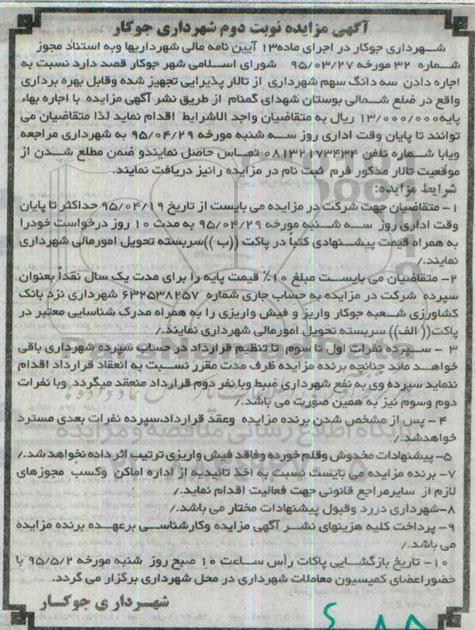 آگهی مزایده نوبت دوم شهرداری جوکار
شهرداری جوکار در اجرای ماده۱۳ آیین نامه مالی شهرداریها وبه استناد مجوز
شماره ۳۲ مورخه ۹۵/۰۳/۲۷ شورای اسلامی شهر جوکار قصد دارد نسبت به
اجاره دادن سه دانگ سهم شهرداری از تالار پذیرایی تجهیز شده وقابل بهره برداری
واقع در ضلع شمالی بوستان شهدای گمنام از طریق نشر آگهی مزایده با اجاره بهاء
پایه۱۳/۰۰۰/۰۰۰ ریال به متقاضیان واجد الشرایط اقدام نماید لذا متقاضیان می
توانند تا پایان وقت اداری روز سه شنبه مورخه ۹۵/۰۴/۲۹ به شهرداری مراجعه
ویابا شماره تلفن ۰۸۱۳۲۱۷۳۴۳۴ تماس حاصل نمایندو ضمن مطلع شدن از
موقعیت تالار مذکور فرم ثبت نام در مزایده را نیز دریافت نمایند.
شرایط مزایده:
۱- متقاضیان جهت شرکت در مزایده می بایست از تاریخ ۹۵/۰۴/۱۹ حداکثر تا پایان
وقت اداری روز سه شنبه مورخه ۹۵/۰۴/۲۹ به مدت ۱۰ روز درخواست خودرا
به همراه قیمت پیشنهادی کتباً در پاکت ((ب ))سربسته تحویل امورمالی شهرداری
نمایند./
۲- متقاضیان می بایست مبلغ ۱۰٪ قیمت پایه را برای مدت یک سال نقداً بعنوان
سپرده شرکت در مزایده به حساب جاری شماره ۶۳۲۵۳۸۲۵۷ شهرداری نزد بانک
کشاورزی شعبه جوکار واریز و فیش واریزی را به همراه مدرک شناسایی معتبر در
پاکت(( الف)) سربسته تحویل امورمالی شهرداری نمایند./
۳ - سپرده نفرات اول تا سوم تا تنظیم قرارداد در حساب سپرده شهرداری باقی
خواهد ماند چنانچه برنده مزایده ظرف مدت مقرر نسبت به انعقاد قرارداد اقدام
ننماید سپرده وی به نفع شهرداری ضبط وبا نفر دوم قرارداد منعقد میگردد وبا نفرات
دوم وسوم نیز به همین صورت می باشد./
۴ - پس از مشخص شدن برنده مزایده وعقد قرارداد،سپرده نفرات بعدی مسترد
خواهدشد./
۵- پیشنهادات مخدوش وقلم خورده وفاقد فیش واریزی ترتیب اثر داده نخواهد شد./
۷- برنده مزایده می بایست نسبت به اخذ تائیدیه از اداره اماکن وکسب مجوزهای
لازم از سایرمراجع قانونی جهت فعالیت اقدام نماید./
۸-شهرداری دررد وقبول پیشنهادات مختار می باشد./
۹- پرداخت کلیه هزینهای نشر آگهی مزایده وکارشناسی برعهده برنده مزایده
می باشد./
۱۰- تاریخ بازگشایی پاکات رأس ساعت ۱۰ صبح روز شنبه مورخه ۹۵/۵/۲ با
حضوراعضای کمیسیون معاملات شهرداری در محل شهرداری برگزار می گردد.
شهرداری جوکار